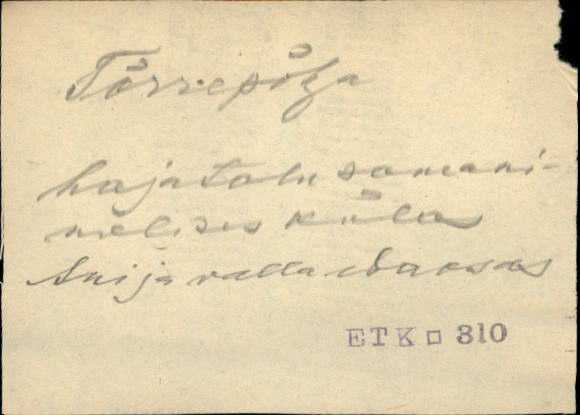 Tõrrepõhja
hajatalu samani-
melises külas
Anija valla
ETK □ 310